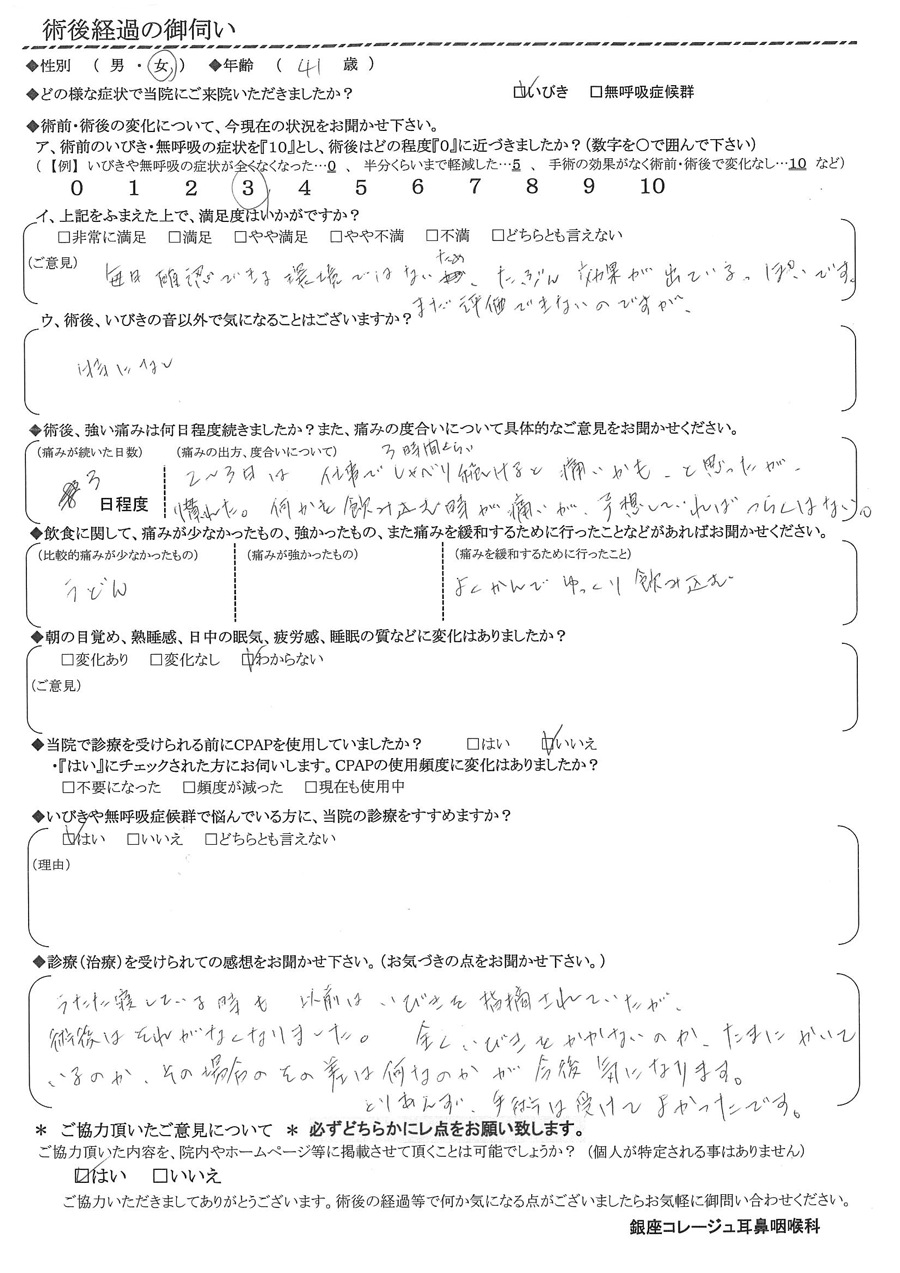 術後経過の御伺い
◆性別 （ 男 ・ 女 ） ◆年齢 （ 41 歳 ）
◆どの様な症状で当院にご来院いただきましたか？ ☑いびき □無呼吸症候群
◆術前・術後の変化について、今現在の状況をお聞かせ下さい。
ア、術前のいびき・無呼吸の症状を『10』とし、術後はどの程度『0』に近づきましたか？（数字を〇で囲んで下さい）
（ 【例】 いびきや無呼吸の症状が全くなくなった…0 、 半分くらいまで軽減した…5 、 手術の効果がなく術前・術後で変化なし…10 など）
0 1 2 3 4 5 6 7 8 9 10
イ、上記をふまえた上で、満足度はいかがですか？
□非常に満足 □満足 □やや満足 □やや不満 □不満 □どちらとも言えない
（ご意見） 毎日確認できる環境ではないため、たぶん効果が出ている。ぽいです。
まだ評価できないのですが、
ウ、術後、いびきの音以外で気になることはございますか？
特になし
◆術後、強い痛みは何日程度続きましたか？また、痛みの度合いについて具体的なご意見をお聞かせください。
（痛みが続いた日数） （痛みの出方、度合いについて） 3時間くらい
3 日程度 2～3日は 仕事でしゃべり続けると痛いかも、と思ったが、
慣れた。何かを飲み込む時が痛いが、予想していればつらくはない。
◆飲食に関して、痛みが少なかったもの、強かったもの、また痛みを緩和するために行ったことなどがあればお聞かせください。
（比較的痛みが少なかったもの） （痛みが強かったもの） （痛みを緩和するために行ったこと）
うどん よくかんでゆっくり飲み込む
◆朝の目覚め、熟睡感、日中の眠気、疲労感、睡眠の質などに変化はありましたか？
□変化あり □変化なし ☑わからない
（ご意見）
◆当院で診療を受けられる前にCPAPを使用していましたか？ □はい ☑いいえ
・『はい』にチェックされた方にお伺いします。CPAPの使用頻度に変化はありましたか？
□不要になった □頻度が減った □現在も使用中
◆いびきや無呼吸症候群で悩んでいる方に、当院の診療をすすめますか？
☑はい □いいえ □どちらとも言えない
（理由）
◆診療（治療）を受けられての感想をお聞かせ下さい。（お気づきの点をお聞かせ下さい。）
うたた寝している時も 以前はいびきを指摘されていたが、
術後はそれがなくなりました。 全くいびきをかかないのか、たまにかいて
いるのか、その場合のその差は何なのかが今後気になります。
とりあえず、手術は受けてよかったです。
＊ ご協力頂いたご意見について ＊ 必ずどちらかにレ点をお願い致します。
ご協力頂いた内容を、院内やホームページ等に掲載させて頂くことは可能でしょうか？ （個人が特定される事はありません）
☑はい □いいえ
ご協力いただきましてありがとうございます。術後の経過等で何か気になる点がございましたらお気軽に御問い合わせください。
銀座コレージュ耳鼻咽喉科